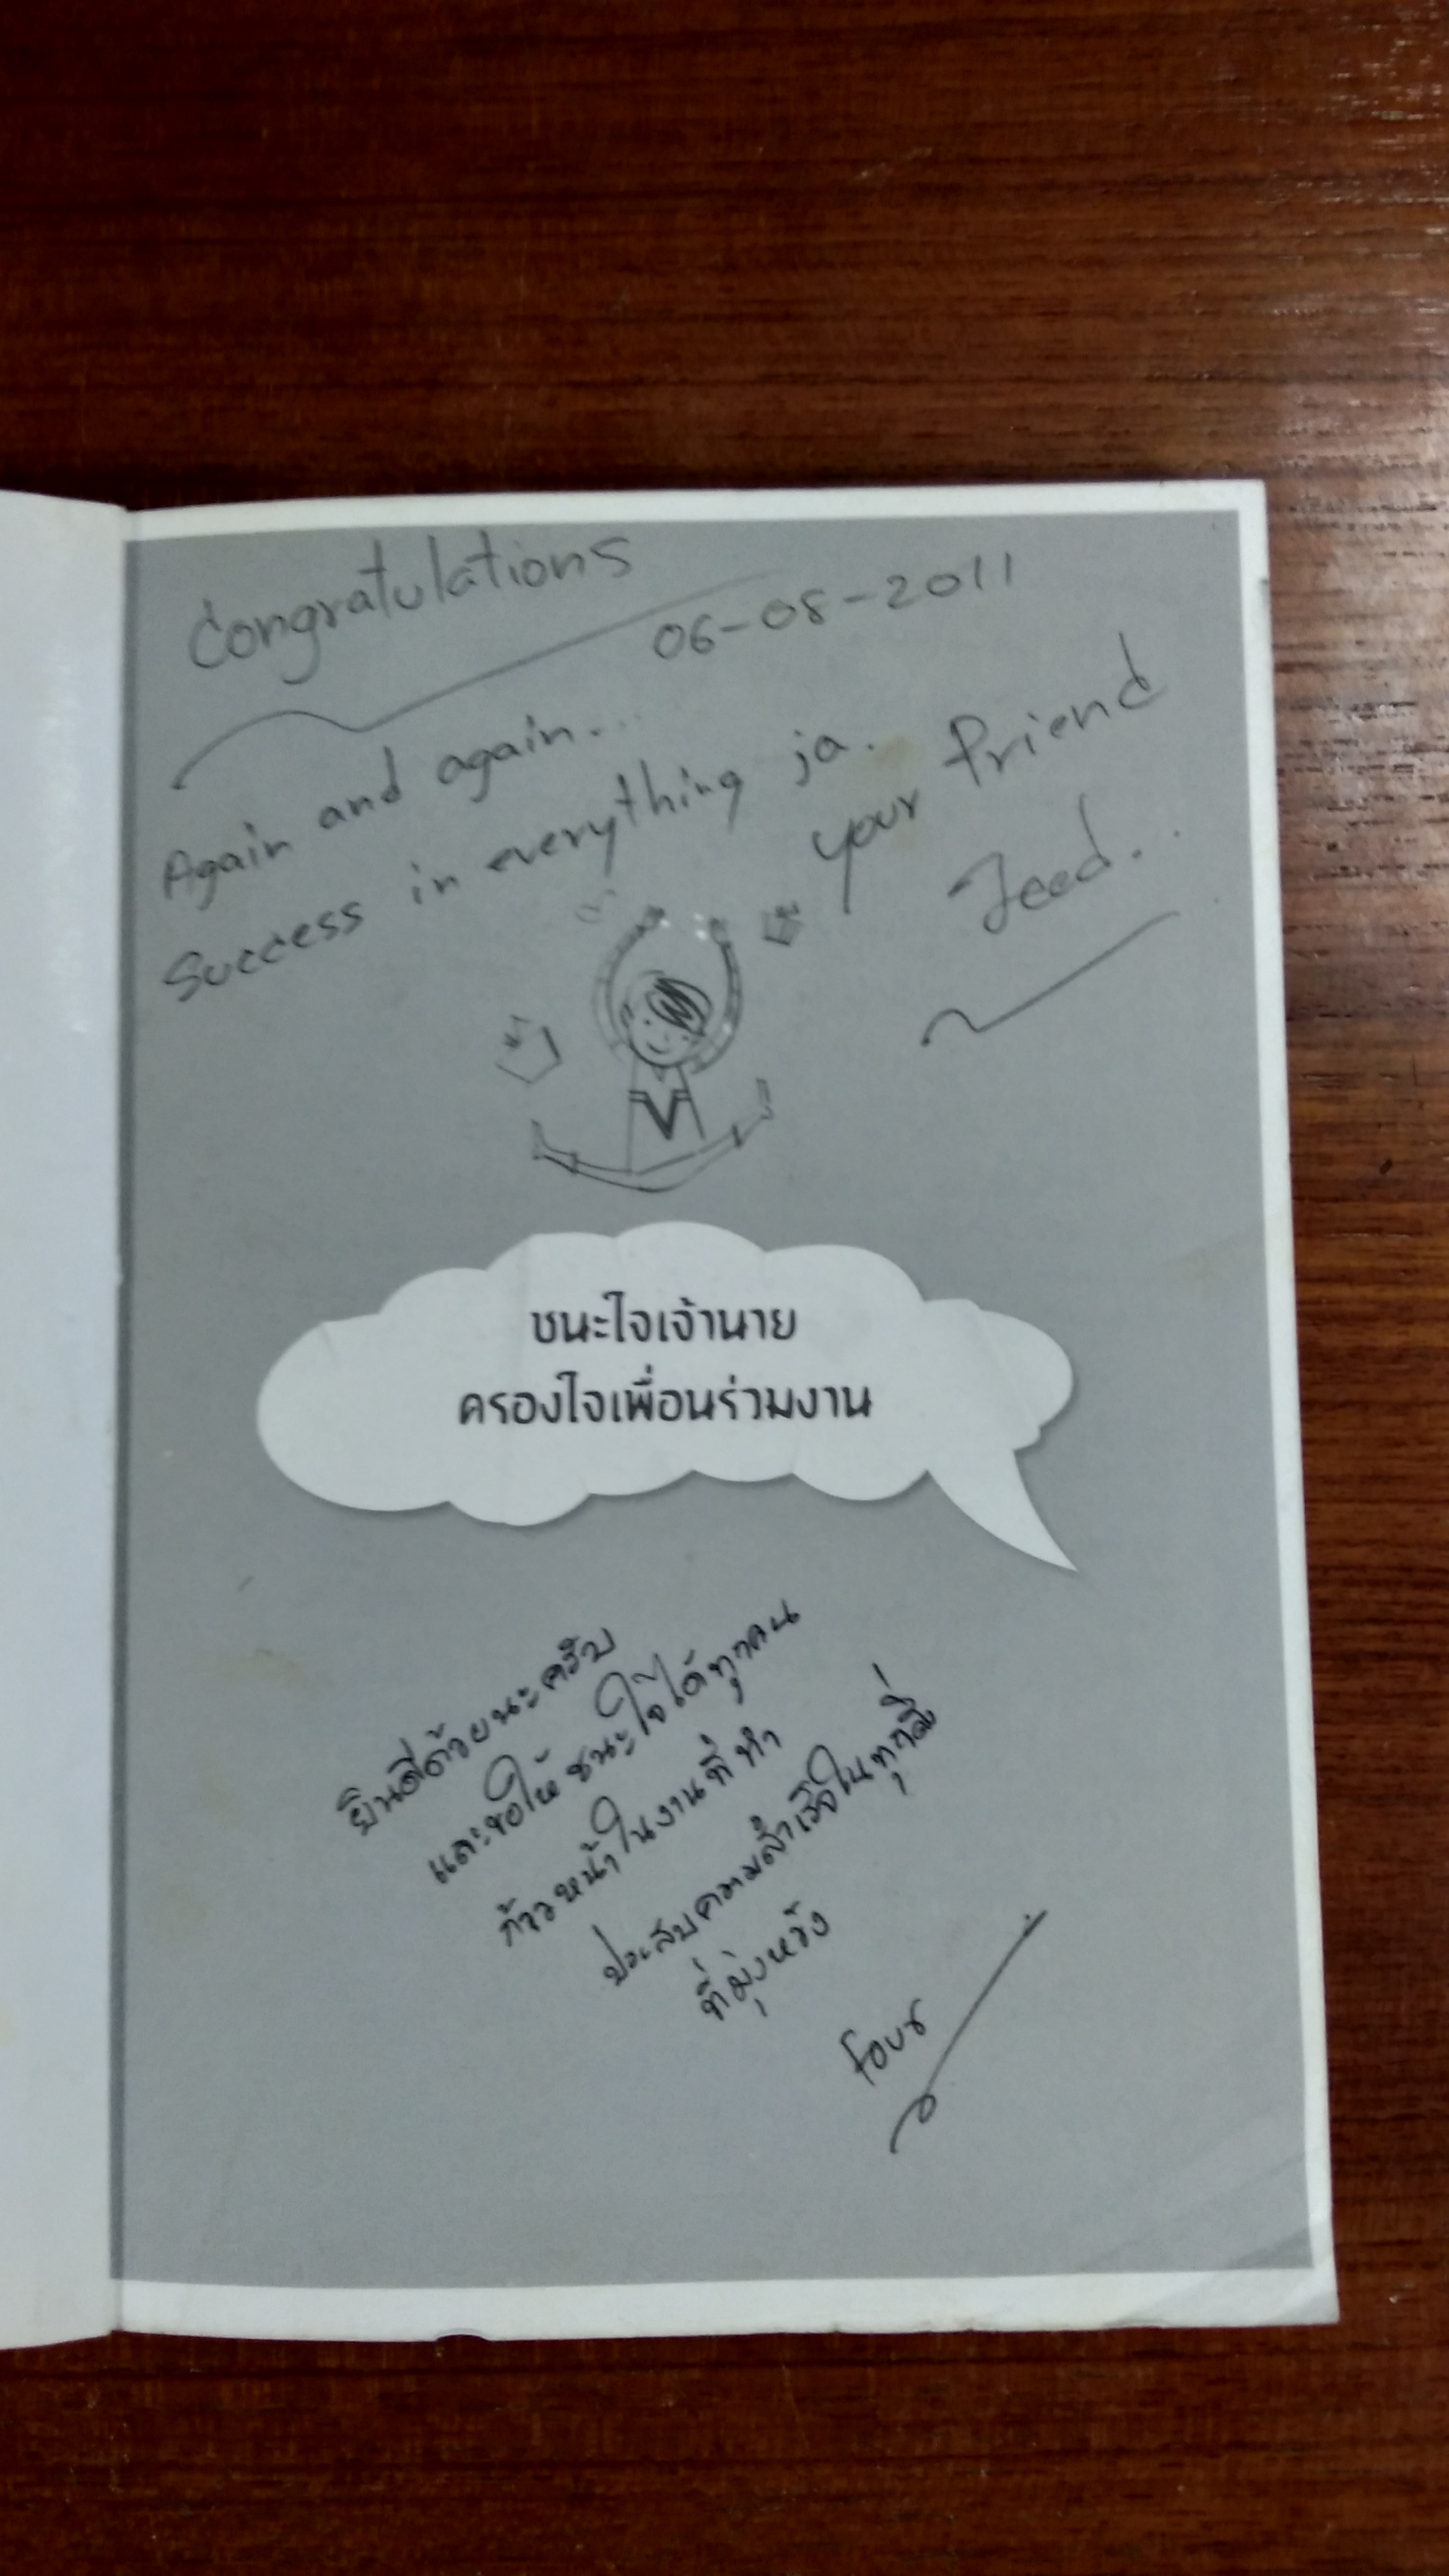 Congratulations
06-08-2011
Again and again...
Success in everything ja.
your friend
Jeed..
ชนะใจเจ้านาย
ครองใจเพื่อนร่วมงาน
ยินดีด้วยนะครับ
และขอให้ชนะใจได้ทุกคน
ก้าวหน้าในงานที่ทำ
ประสบความสำเร็จในทุกสิ่ง
ที่มุ่งหวัง
four